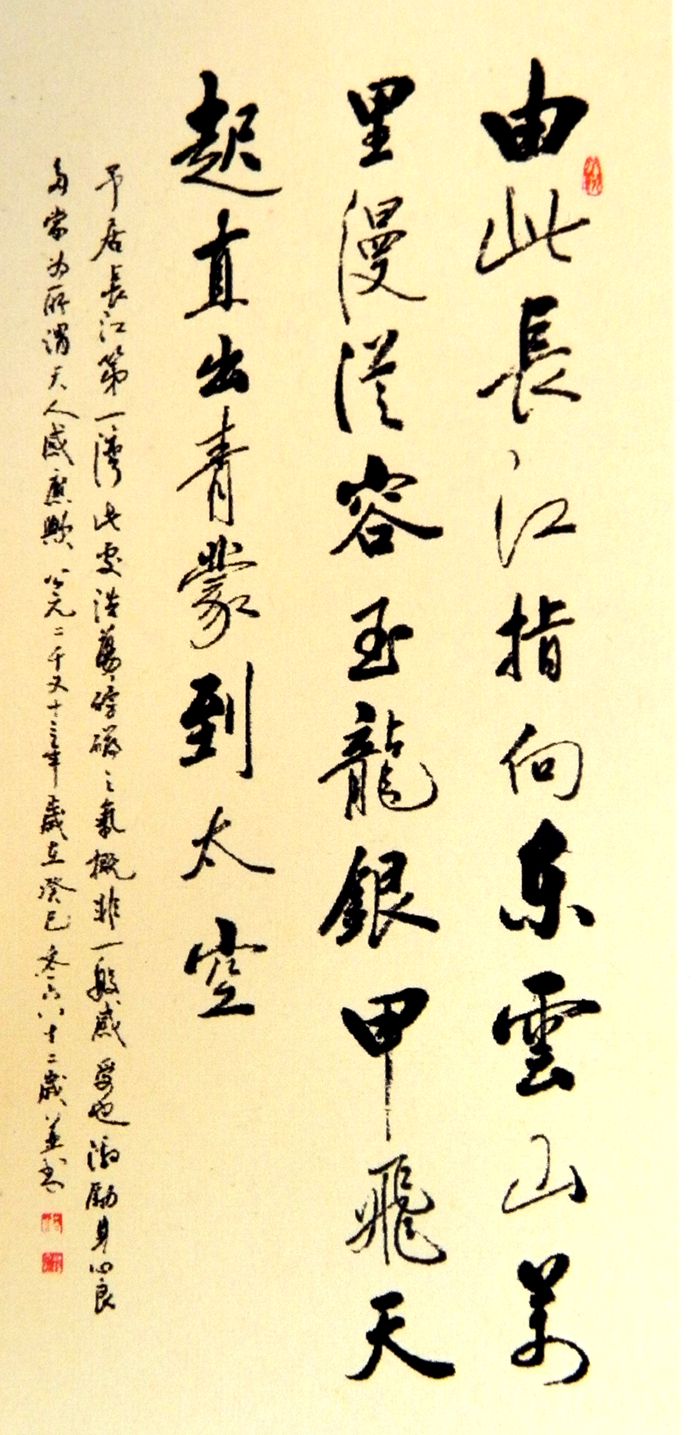 由此長江指向东雲山萬
里漫從容玉龍銀甲飛天
起直出青蒙到太空
予居長江第一灣此雯浩蕩磅礴之氣概非一般感受也激勵身心良
多常为所謂天人感應歟公元二千又十三年歲在癸巳八十二歲並书